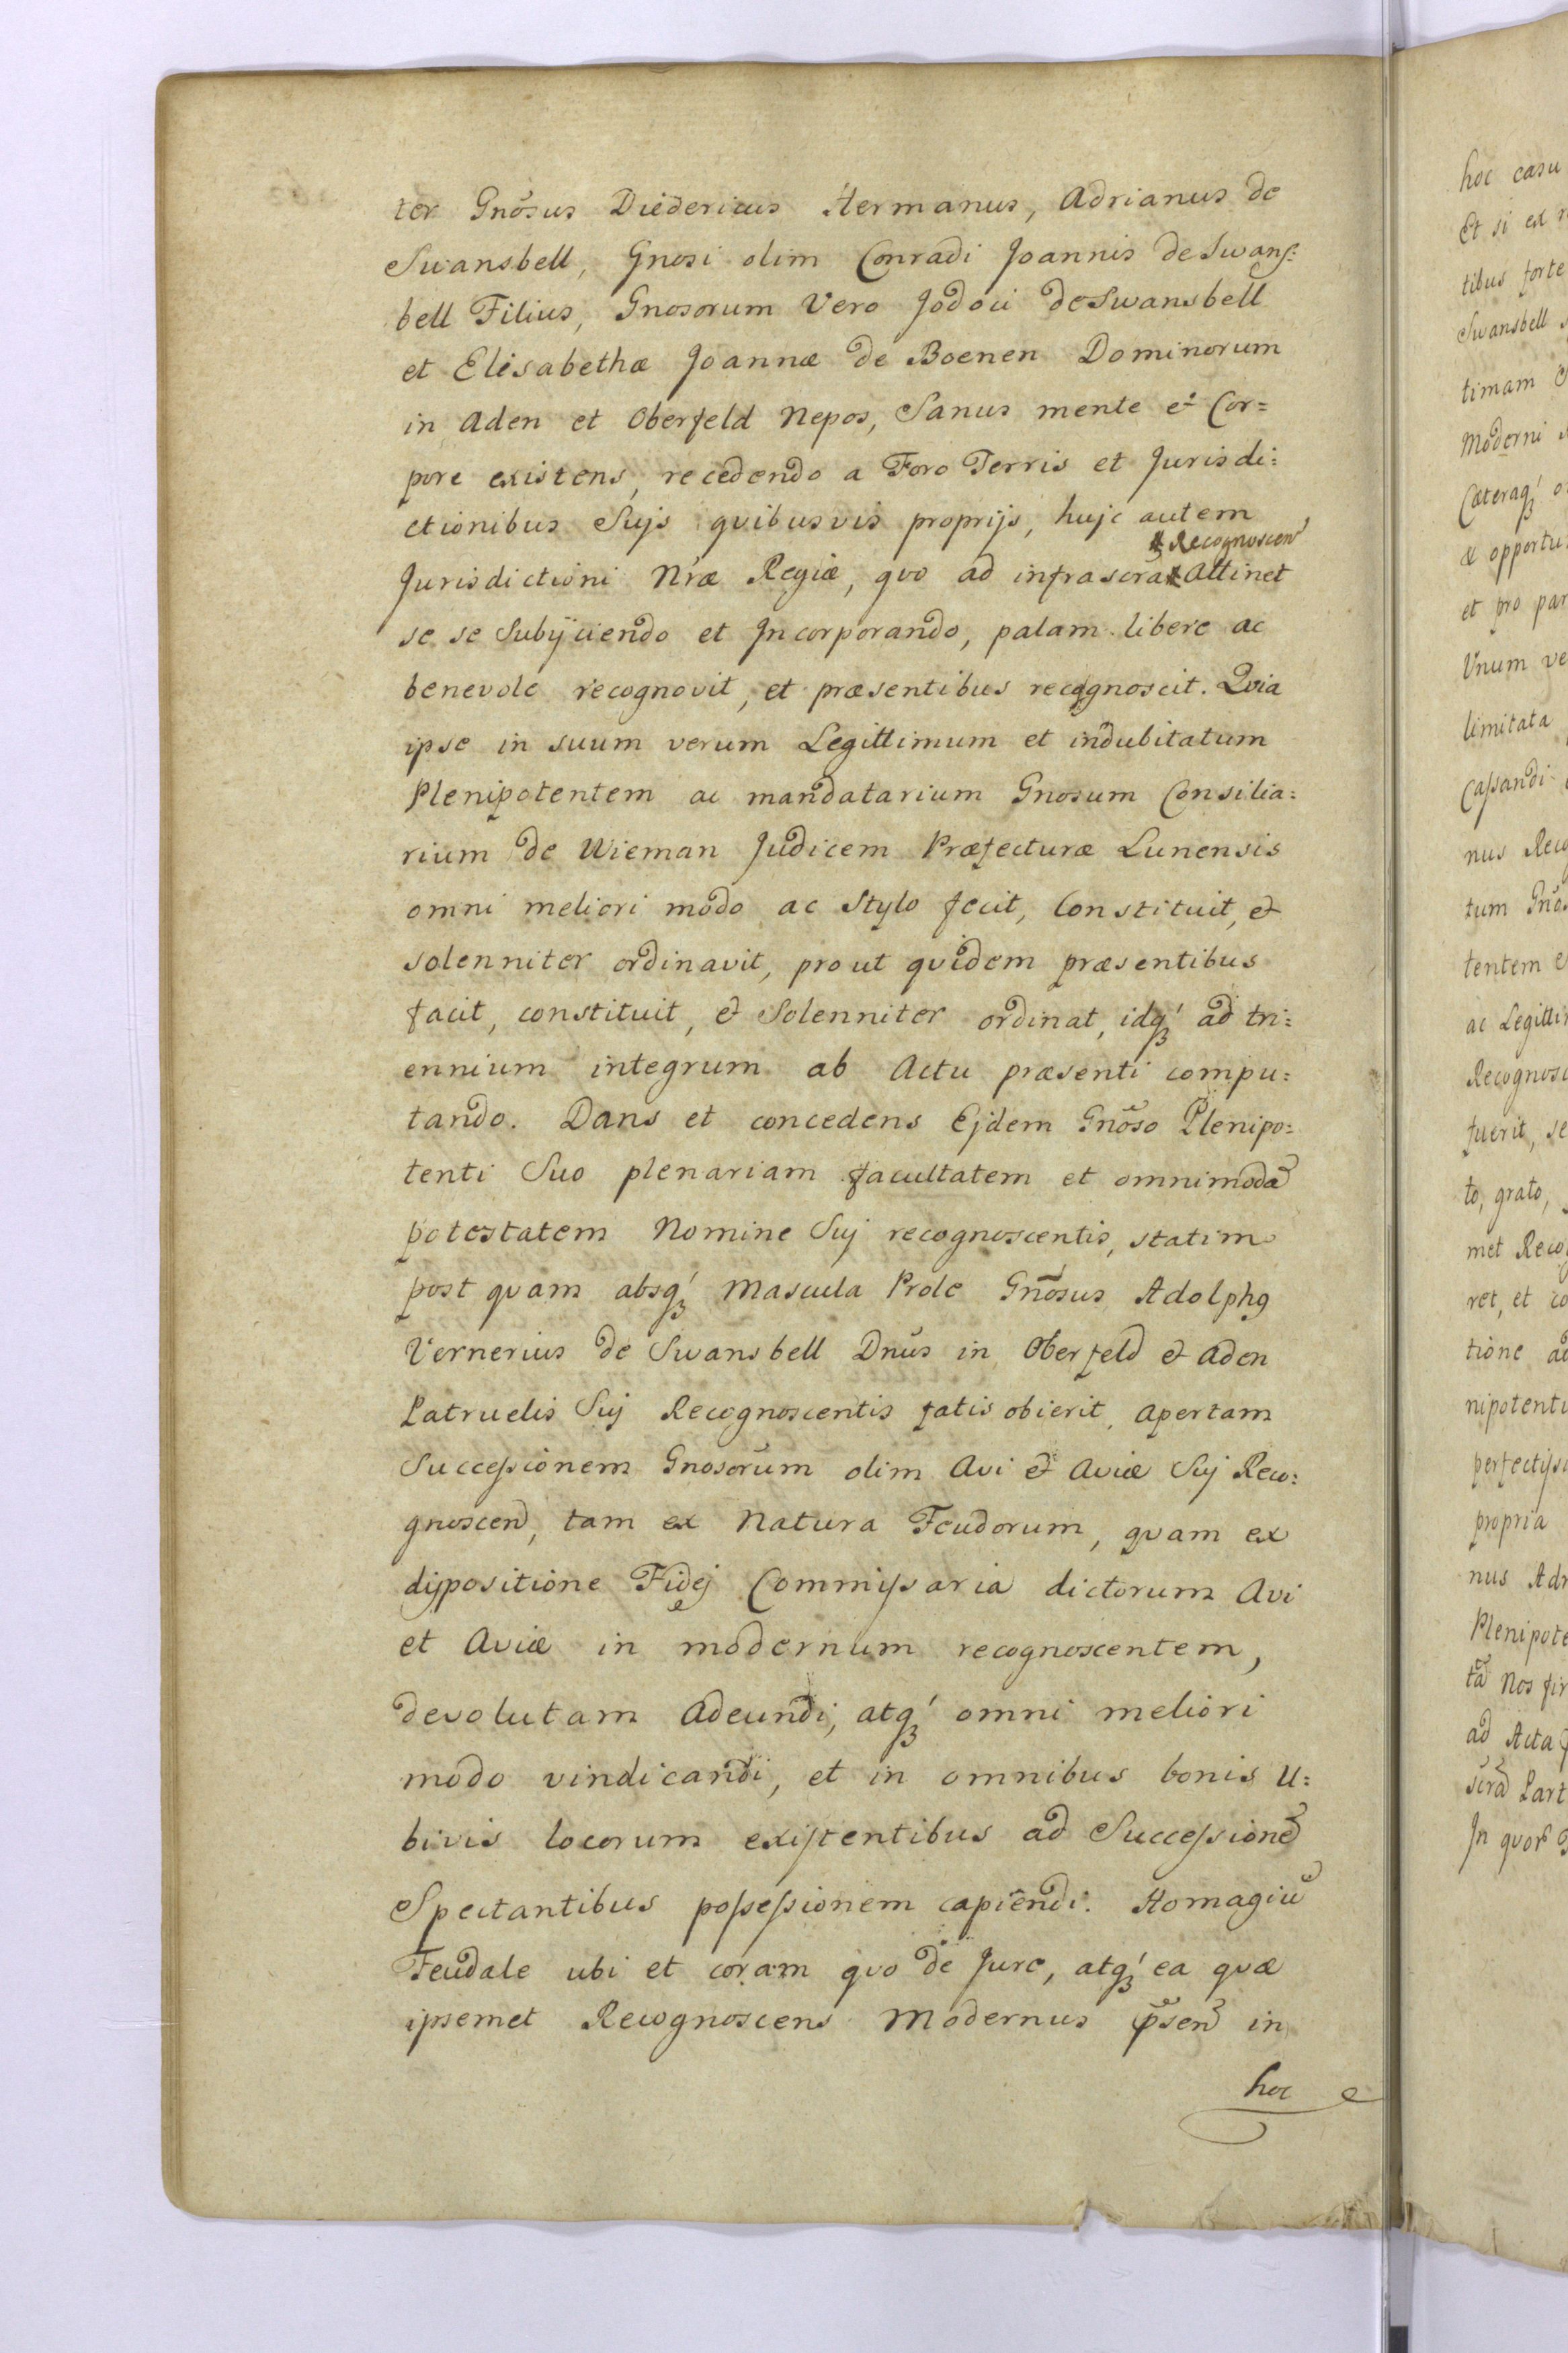 ter Gnõsus Diedericus Hermanus, Adrianus de
Swansbell, Gnosi olim Conradi Joannis de Swans:
bell Filius, Gnosorum Vero Jodoci de Swansbell
et Elisabethæ Joannæ de Boenen Dominorum
in Aden et Oberfeld Nepos, Sanus mente et Cor=
pore existens, recedendo a Foro Terris et Jurisdi:
ctionibus Sujs quibusvis proprijs, hujc autem
Recognoscen
Jurisdictioni Nræ Regiæ, quo ad infrascra Attinet
se se Subijciendo et Incorporando, palam libere ac
benevole recognovit, et præsentibus recognoscit. Qvia
ipse in suum verum Legittimum et indubitatum
Plenipotentem ac mandatarium Gnosum Consilia:
rium de Wieman Judicem Præfecturæ Lunensis
omni meliori modo ac Stylo fecit, Constituit, et
solenniter ordinavit, prout quidem præsentibus
facit, constituit, et Solenniter ordinat, idq́ ad tri:
ennium integrum ab Actu præsenti compu:
tando. Dans et concedens Ejdem Gnõso Plenipo:
tenti Suo plenariam facultatem et omnimodã
potestatem Nomine Suj recognoscentis, statim
post quam absq́ Mascula Prole Gnõsus Adolphg
Vernerius de Swansbell Dnus in Oberfeld et Aden
Patruelis Suj Recognoscentis fatis obierit, apertam
Successionem Gnosorum olim Avi et Aviæ Suj Reco:
gnoscen, tam ex Natura Feudorum, quam ex
dispositione Fidej Commissaria dictorum Avi
et Aviæ in modernum recognoscentem,
devolutam Adeundi, atq́ omni meliori
modo vindicandi, et in omnibus bonis U:
bivis locorum existentibus ad Successionẽ
Spectantibus possessionem capiendi. Homagiũ
Feudale ubi et coram quo de Jure, atq́ ea quæ
ipsemet Recognoscens Modernus p̃sen in
hoc
hoc casu
Et si ex
tibus forte
Swansbell
timam
Moderni
Cæteraq́
et pro par
Unum ve
limitata
Cassandi
nus Reco
tum Gno
tentem e
ac Legitti
Recognosc
fuerit, se
to, grato,
met Reco
ret, et co
tione ad
nipotenti
propria
nus Adr
Plenipote
tã Nos fir
ad Acta
scrã Part
In quor